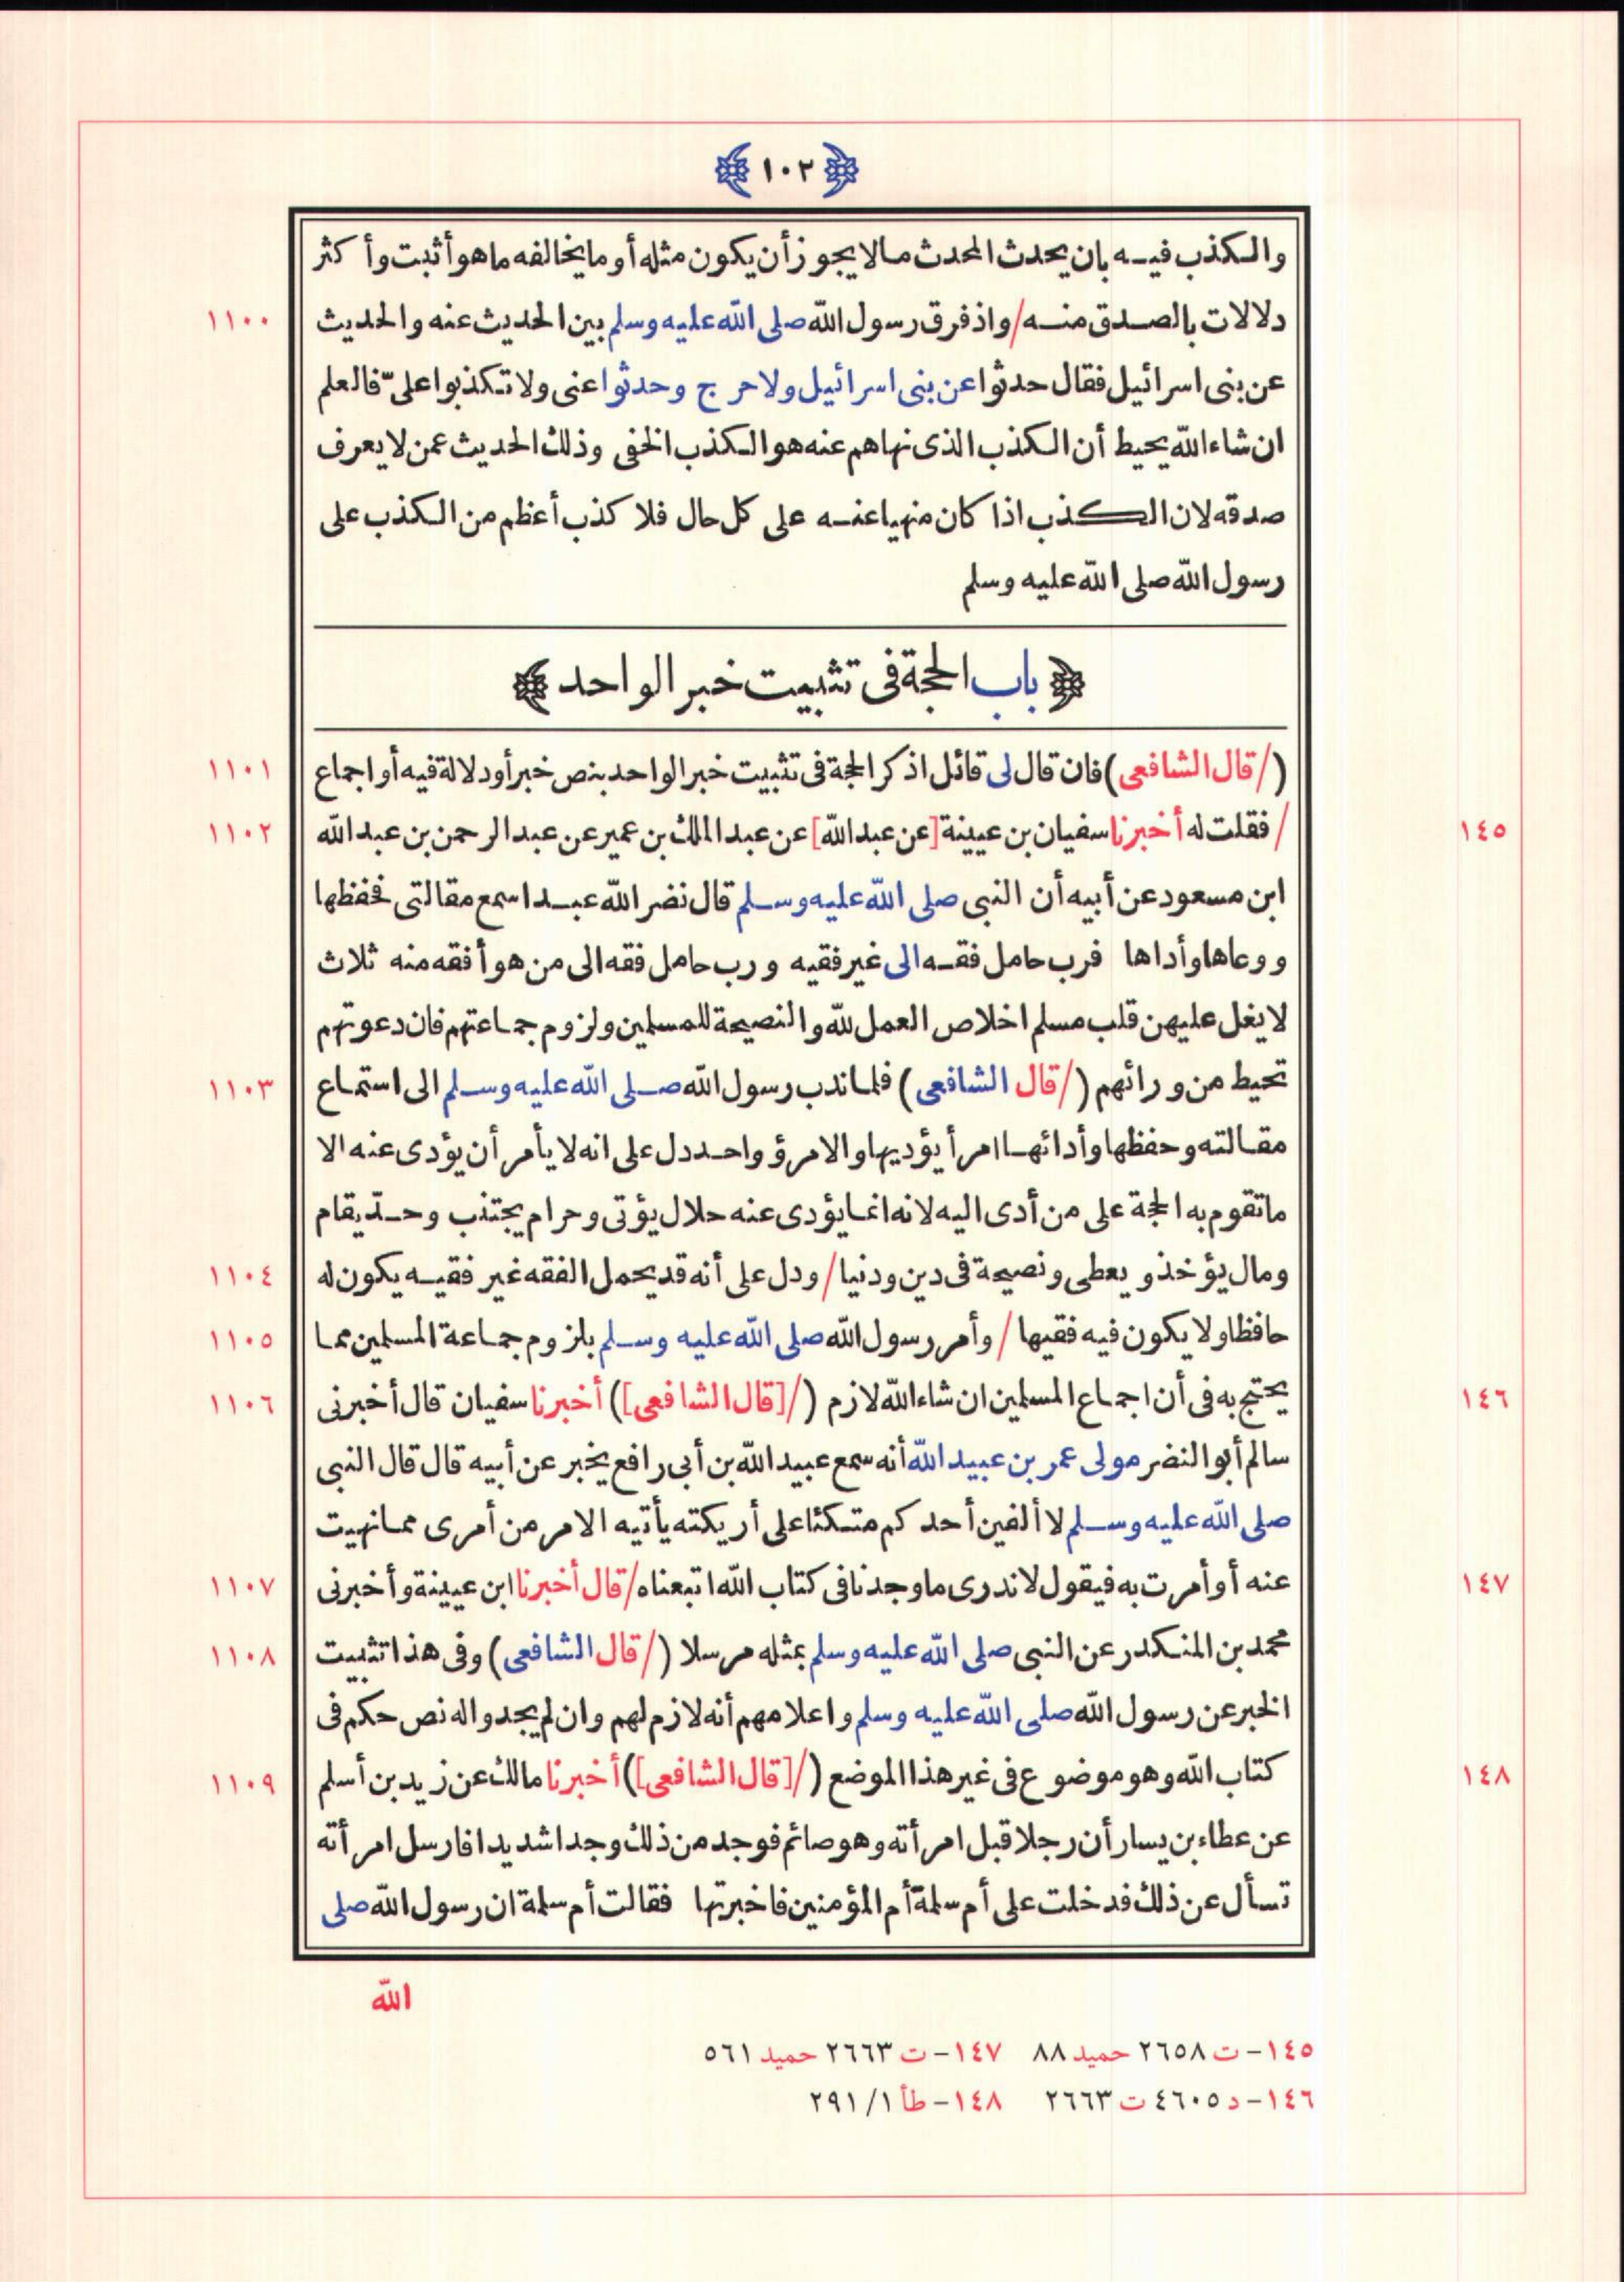 ١٠٢
والكذب فيه بان يحدث المحدث مالا يجوز أن يكون مثله أو ما يخالفه ما هو أثبت وأكثر
١١٠٠ دلالات بالصدق منه / واذ فرق رسول الله صلى الله عليه وسلم بين الحديث عنه والحديث
عن بنى اسرائيل فقال حدثوا عن بنى اسرائيل ولا حرج وحدثوا عنى ولا تكذبوا علىّ فالعلم
ان شاء الله يحيط أن الكذب الذى نهاهم عنه هو الكذب الخفى وذلك الحديث عمن لا يعرف
صدقه لان الكذب اذا كان منهيا عنه على كل حال فلا كذب أعظم من الكذب على
رسول الله صلى الله عليه وسلم
باب الحجة فى تثبيت خبر الواحد
١١٠١ (/ قال الشافعى) فان قال لى قائل اذكر الحجة فى تثبيت خبر الواحد بنص خبر أو دلالة فيه أو اجماع
١٤٥ ١١٠٢ / فقلت له أخبرنا سفيان بن عيينة [عن عبد الله] عن عبد الملك بن عمير عن عبد الرحمن بن عبد الله
ابن مسعود عن أبيه أن النبى صلى الله عليه وسلم قال نضر الله عبدا سمع مقالتى فحفظها
ووعاها وأداها فرب حامل فقه الى غير فقيه ورب حامل فقه الى من هو أفقه منه ثلاث
لا يغل عليهن قلب مسلم اخلاص العمل لله والنصيحة للمسلمين ولزوم جماعتهم فان دعوتهم
١١٠٣ تحيط من ورائهم (/ قال الشافعى) فلما ندب رسول الله صلى الله عليه وسلم الى استماع
مقالته وحفظها وأدائها امرأ يؤديها والامرؤ واحد دل على انه لا يأمر أن يؤدى عنه الا
ما تقوم به الحجة على من أدى اليه لانه انما يؤدى عنه حلال يؤتى وحرام يجتنب وحدّ يقام
١١٠٤ ومال يؤخذ و يعطى ونصيحة فى دين ودنيا / ودل على أنه قد يحمل الفقه غير فقيه يكون له
١١٠٥ حافظا ولا يكون فيه فقيها / وأمر رسول الله صلى الله عليه وسلم بلزوم جماعة المسلمين مما
١٤٦ ١١٠٦ يحتج به فى أن اجماع المسلمين ان شاء الله لازم (/[قال الشافعى]) أخبرنا سفيان قال أخبرنى
سالم أبو النضر مولى عمر بن عبيد الله أنه سمع عبيد الله بن أبى رافع يخبر عن أبيه قال قال النبى
صلى الله عليه وسلم لا ألفين أحدكم متكئا على أريكته يأتيه الامر من أمرى مما نهيت
١٤٧ ١١٠٧ عنه أو أمرت به فيقول لا ندرى ما وجدنا فى كتاب الله اتبعناه / قال أخبرنا ابن عيينة وأخبرنى
١١٠٨ محمد بن المنكدر عن النبى صلى الله عليه وسلم بمثله مرسلا (/ قال الشافعى) وفى هذا تثبيت
الخبر عن رسول الله صلى الله عليه وسلم واعلامهم أنه لازم لهم وان لم يجدوا له نص حكم فى
١٤٨ ١١٠٩ كتاب الله وهو موضوع فى غير هذا الموضع (/[قال الشافعى]) أخبرنا مالك عن زيد بن أسلم
عن عطاء بن يسار أن رجلا قبل امرأته وهو صائم فوجد من ذلك وجدا شديدا فارسل امرأته
تسأل عن ذلك فدخلت على أم سلمة أم المؤمنين فاخبرتها فقالت أم سلمة ان رسول الله صلى
الله
١٤٥- ت ٢٦٥٨ حميد ٨٨ ١٤٧- ت ٢٦٦٣ حميد ٥٦١
١٤٦- د ٤٦٠٥ ت ٢٦٦٣ ١٤٨- طأ ٢٩١/١